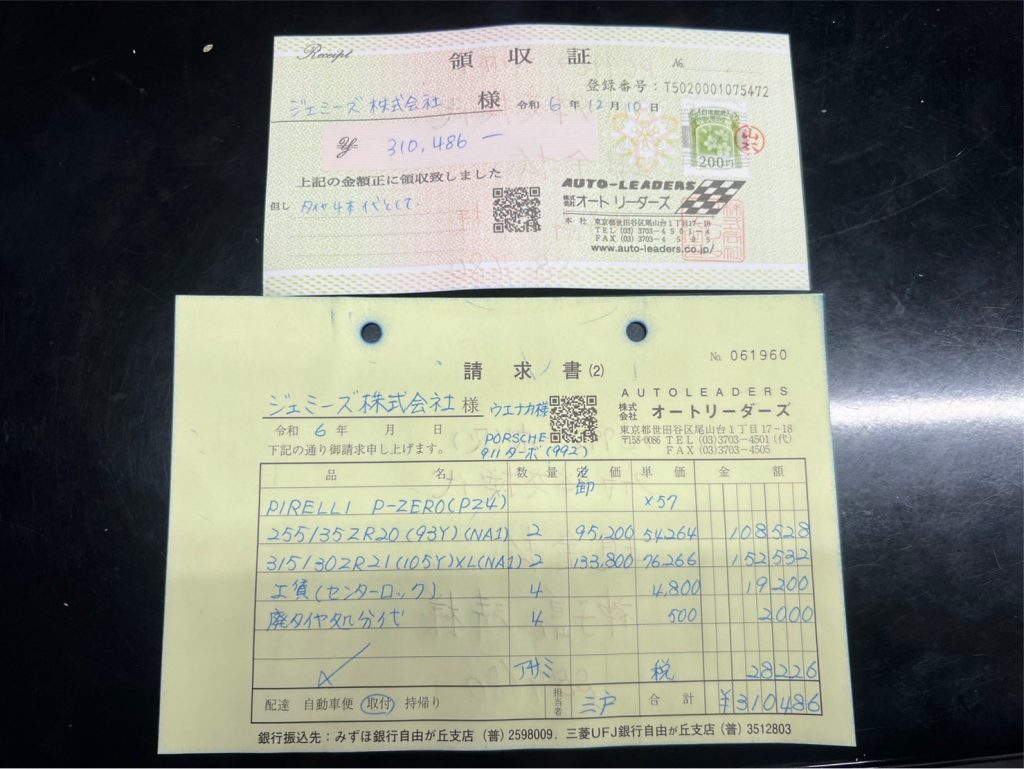 Receipt
領収証
№
登録番号：T5020001075472
ジェミーズ株式会社 様
令和 6 年 12 月 10 日
¥ 310,486 ー
200円
上記の金額正に領収致しました
但し タイヤ4本代として
AUTO-LEADERS
株式会社 オートリーダーズ
本社 東京都世田谷区尾山台1丁目17-18
TEL (03) 3703-4501-4
FAX (03) 3703-4505
www.auto-leaders.co.jp/
№ 061960
請求書(2)
AUTOLEADERS
ジェミーズ株式会社 様 ウエナカ様
株式会社 オートリーダーズ
令和 6 年 月 日
東京都世田谷区尾山台1丁目17-18
〒158-0086 TEL (03)3703-4501 (代)
FAX (03)3703-4505
下記の通り御請求申し上げます。
PORSCHE
911ターボ(992)
品名 数量 定価 単価 金額
卸
PIRELLI P-ZERO(PZ4) ×57
255/35ZR20(93Y)(NA1) 2 95,200 54264 108528
315/30ZR21(105Y)XL(NA1) 2 133,800 76,266 152532
工賃(センターロック) 4 4,800 19200
廃タイヤ処分代 4 500 2000
アサミ 税 28226
配達 自動車便 取付 持帰り 担当者 三戸 合計 ¥310486
銀行振込先：みずほ銀行自由が丘支店 (普) 2598009．三菱UFJ銀行自由が丘支店 (普) 3512803